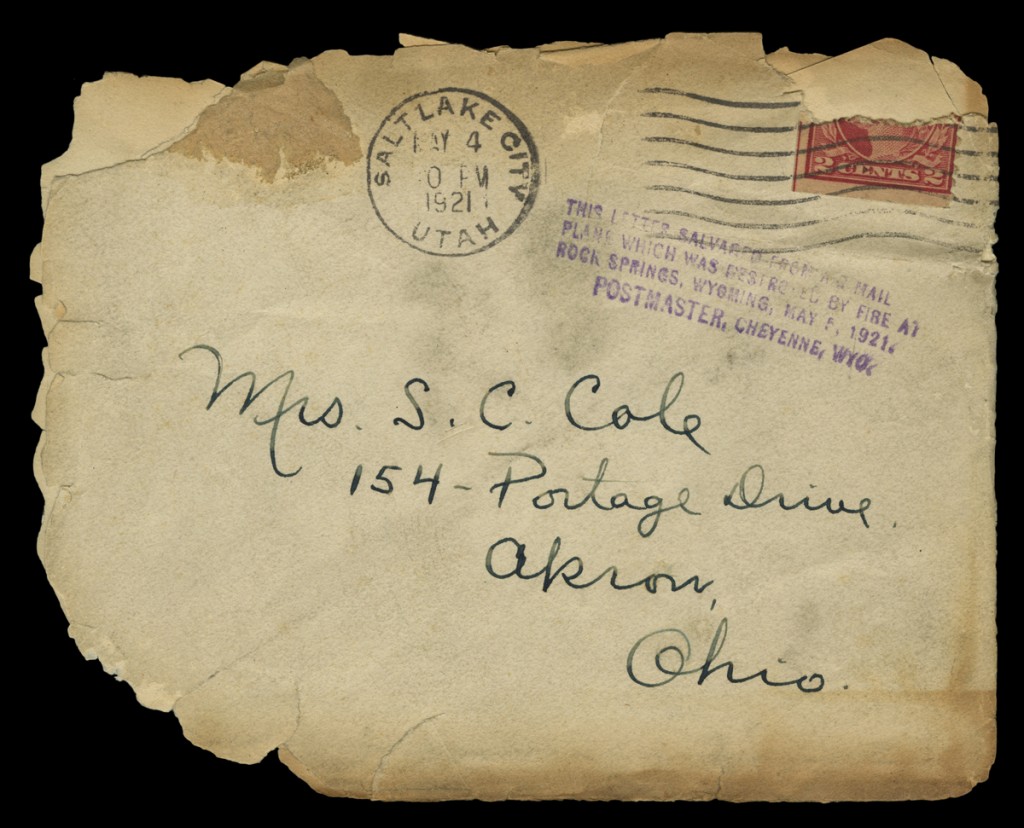 SALT LAKE CITY
MAY 4
PM
1921
UTAH
2 CENTS 2
THIS LETTER SALVAGED FROM MAIL
PLANE WHICH WAS DESTROYED BY FIRE AT
ROCK SPRINGS, WYOMING, MAY 5, 1921.
POSTMASTER, CHEYENNE, WYO.
Mrs. S. C. Cole
154 - Portage Drive.
Akron,
Ohio.